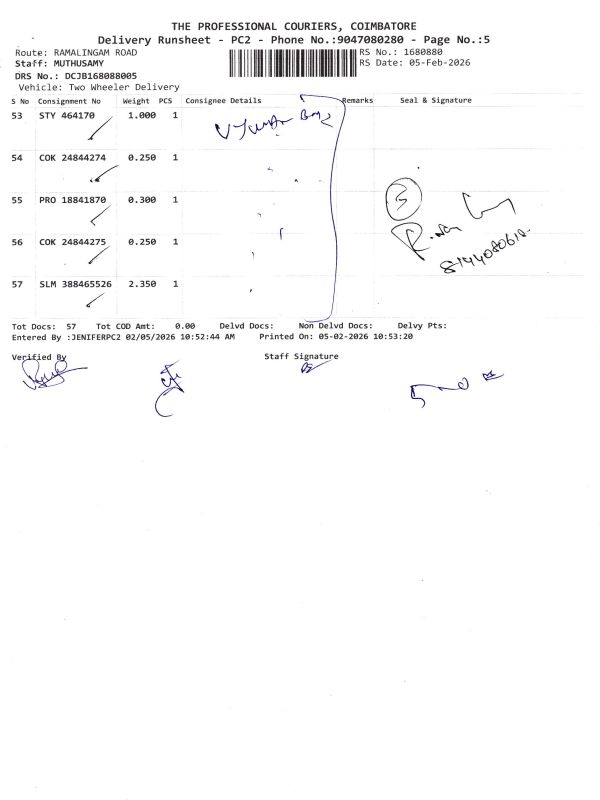 THE PROFESSIONAL COURIERS, COIMBATORE
Delivery Runsheet - PC2 - Phone No.:9047080280 - Page No.:5
Route: RAMALINGAM ROAD
RS No.: 1680880
Staff: MUTHUSAMY
RS Date: 05-Feb-2026
DRS No.: DCJB168088005
Vehicle: Two Wheeler Delivery
S No Consignment No Weight PCS Consignee Details Remarks Seal & Signature
53 STY 464170 1.000 1
54 COK 24844274 0.250 1
55 PRO 18841870 0.300 1
3
56 COK 24844275 0.250 1
57 SLM 388465526 2.350 1
Tot Docs: 57 Tot COD Amt: 0.00 Delvd Docs: Non Delvd Docs: Delvy Pts:
Entered By :JENIFERPC2 02/05/2026 10:52:44 AM Printed On: 05-02-2026 10:53:20
Verified By Staff Signature